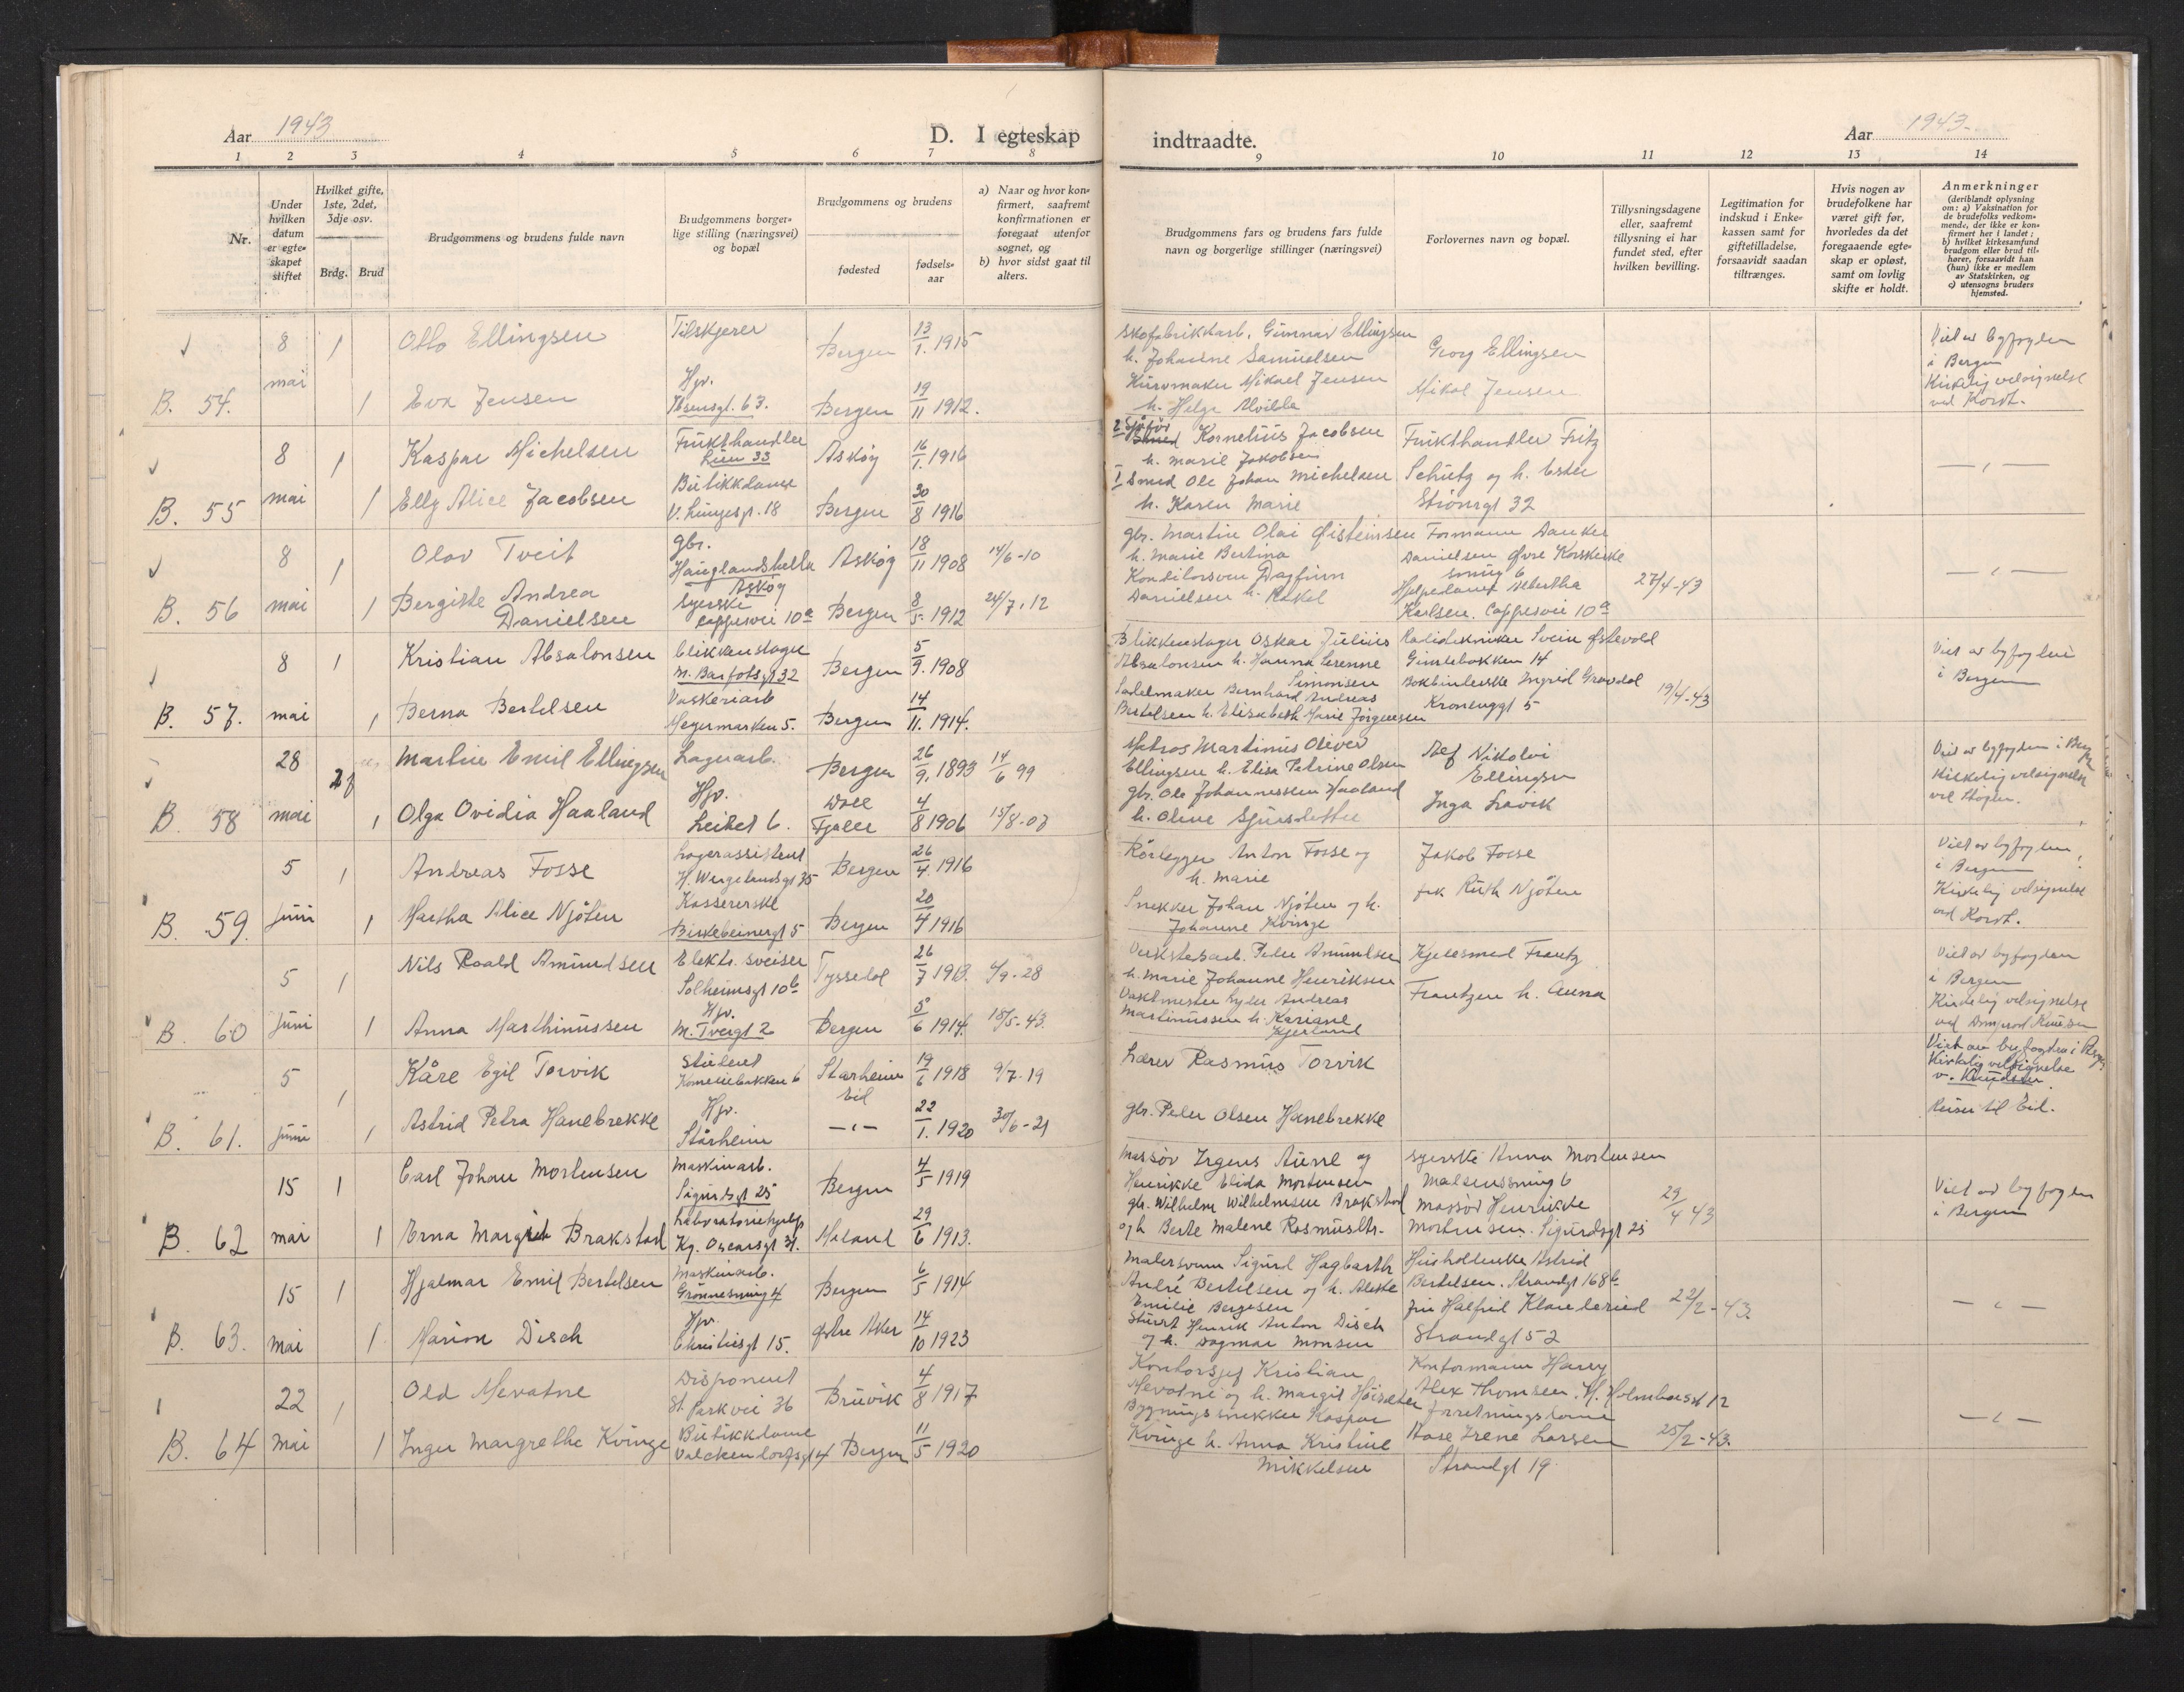 Aar 1943
D. I egteskap
1 2 3 4 5 6 7 8
Nr.
Under
hvilken
datum
er egte-
skapet
stiftet
Hvilket gifte,
1ste, 2det,
3dje osv.
Brdg. Brud
Brudgommens og brudens fulde navn
Brudgommens borger-
lige stilling (næringsvei)
og bopæl
Brudgommens og brudens
fødested
fødsels-
aar
a) Naar og hvor kon-
firmert, saafremt
konfirmationen er
foregaat utenfor
sognet, og
b) hvor sidst gaat til
alters.
8 1 Otto Ellingsen Tilskjerer Bergen 13/1. 1915
mai Hjv.
B. 54. 1 Eva Jensen Ibsensgt. 63. Bergen 19/11 1912.
8 1 Kaspar Michelsen Frukthandler
Lien 33 Askøy 16/1. 1916
mai 1 Elly Alice Jacobsen Butikkdame
B. 55 V. Lungesgt. 18 Bergen 30/8 1916
8 1 Olav Tveit gbr.
Hauglandshella Askøy 18/11 1908 14/6-10
Askøy
B. 56 mai 1 Bergitte Andrea syerske
Danielsen Cappesvei 10a Bergen 8/5. 1912 28/7. 12
8 1 Kristian Absalonsen blikkenslager
N. Barfotsgt 32 Bergen 5/9. 1908
B. 57. mai 1 Berna Bertelsen Vaskeriarb
Meyermarken 5. Bergen 14/11. 1914.
28 2g Martin Emil Ellingsen Lagerarb. Bergen 26/9. 1893 14/6 99
Hjv.
B. 58 mai 1 Olga Ovidia Haaland Leitet 6. Fjaler 4/8 1906
5 1 Andreas Fosse Lagerassistent
H. Wergelandsgt 35 Bergen 26/4. 1916
B. 59. Juni 1 Martha Alice Njøten Kassererske
Birkebeinergt 5 Bergen 20/4 1916
5 1 Nils Roald Amundsen Elektr. sveiser
Solheimsgt 10b Tyssedal 26/7 1913. 4/9-28
Hjv.
B. 60 Juni 1 Anna Marthinussen M. Tvergt 2 Bergen 5/6 1914. 18/5-43.
5 1 Kåre Egil Torvik Student
Starheim 19/6 1918 9/7-19
Eid
B. 61. Juni 1 Astrid Petra Hanebrekke Hjv.
Stårheim -"- 22/1. 1920 30/6-21
15 1 Carl Johan Mortensen Maskinarb.
Sigurdsgt 25 Bergen 4/5 1919
B. 62 mai 1 Erna Margit Brakstad Laboratoriehjelp
Kg. Oscarsgt 31. Meland 29/6 1913.
15 1 Hjalmar Emil Bertelsen Maskinarb.
Grønnesmug 4 Bergen 6/5 1914
B. 63. mai 1 Marion Disch Hjv.
Christiesgt 15. Østre Aker 14/10 1923
22 1 Odd Mevatne Disponent
St. Parkvei 36 Bruvik 4/8 1917
B. 64 Mai 1 Inger Margrethe Kvinge Butikkdame
Valckendorfsgt 4 Bergen 11/5 1920
indtraadte.
Aar 1943.
9 10 11 12 13 14
Brudgommens fars og brudens fars fulde
navn og borgerlige stillinger (næringsvei)
Forlovernes navn og bopæl.
Tillysningsdagene
eller, saafremt
tillysning ei har
fundet sted, efter
hvilken bevilling.
Legitimation for
indskud i Enke-
kassen samt for
giftetilladelse,
forsaavidt saadan
tiltrænges.
Hvis nogen av
brudefolkene har
været gift før,
hvorledes da det
foregaaende egte-
skap er opløst,
samt om lovlig
skifte er holdt.
Anmerkninger
(deriblandt oplysning
om: a) Vaksination for
de brudefolks vedkom-
mende, der ikke er kon-
firmert her i landet;
b) hvilket kirkesamfund
brudgom eller brud til-
hører, forsaavidt han
(hun) ikke er medlem
av Statskirken, og
c) utensogns bruders
hjemsted.
Skofabrikkarb. Gunnar Ellingsen
h. Johanne Samuelsen Georg Ellingsen Viet av byfogden
i Bergen
Kurvmaker Mikael Jensen Mikal Jensen Kirkelig velsignelse
h. Helga Alvilde ved Kordt.
2 Sjåfør Kornelius Jacobsen Frukthandler Fritz
h. Marie Jakobsen
1 Smed Ole Johan Michelsen Schütz og h. Ester -"-
h. Karen Marie Strømgt 32
gbr. Martin Olai Øisteinsen Formann Danker
h. Marie Bertina Danielsen Øvre Korskirke
smug 6
Konditorsvenn Dagfinn 27/4-43 -"-
Danielsen h. Rakel Karlsen. Cappesvei 10a
Blikkenslager Oskar Julius Radiotekniker Svein Østevold
Absalonsen h. Hanna Serenne Gimlebakken 14 Viet av byfogden
Simonsen i Bergen
Sadelmaker Bernhard Andreas Bokbinderske Ingrid Gravdal 19/4-43
Bertelsen h. Elisabeth Marie Jørgensen Kronenggt 5
Matros Martinus Oliver Nikolai Viet av byfogden i Berg.
Ellingsen h. Elisa Petrine Olsen Ellingsen Kirkelig velsignelse
gbr. Ole Johannessen Haaland Inga Sravik
h. Oline Sjursdotter
Rørlegger Anton Fosse og Jakob Fosse Viet av byfogden
h. Marie i Bergen
Snekker Johan Njøten og h. frk Ruth Njøten Kirkelig velsignelse
Johanne Kvinge ved Kordt.
Verkstedsarb. Peder Amundsen Kjelesmed Frantz Viet av byfogden
h. Marie Johanne Henriksen Frantzen h. Anna i Bergen
Vaktmester Peder Andreas Kirkelig velsignelse
Martinussen h. Kariane ved Domprost Knudsen
Kjerland
Lærer Rasmus Torvik Viet av byfogden i Berg.
Kirkelig velsignelse
v. Knudsen.
gbr. Peder Olsen Hanebrekke Reiser til Eid.
Massør Irgens Aune og syerske Anna Mortensen
Henrikke Elida Mortensen Malsenssmug 6
gbr. Wilhelm Wilhelmsen Brakstad massør Henrikke 29/4 43 Viet av byfogden
og h Berte Malene Rasmusdtr. Mortensen. Sigurdsgt 25 i Bergen
Malersvenn Sigurd Hagbarth Husholderske Astrid
André Bertelsen og h. Aleske Bertelsen. Strandgt 168b
Emilie Bergesen fru Halfrid Klausterud 22/2-43. -"-
Stuert Henrik Anton Disch Strandgt 52
og h. Dagmar Monsen
Kontorsjef Kristian Kontormann Harry
Mevatne og h. Margit Høiseter Alex Thomsen. M. Holmboesgt 12
Bygningssnekker Kaspar forretningsdame -"-
Kvinge h. Anna Kristine Aase Irene Larsen 25/2-43.
Mikkelsen Strandgt 19